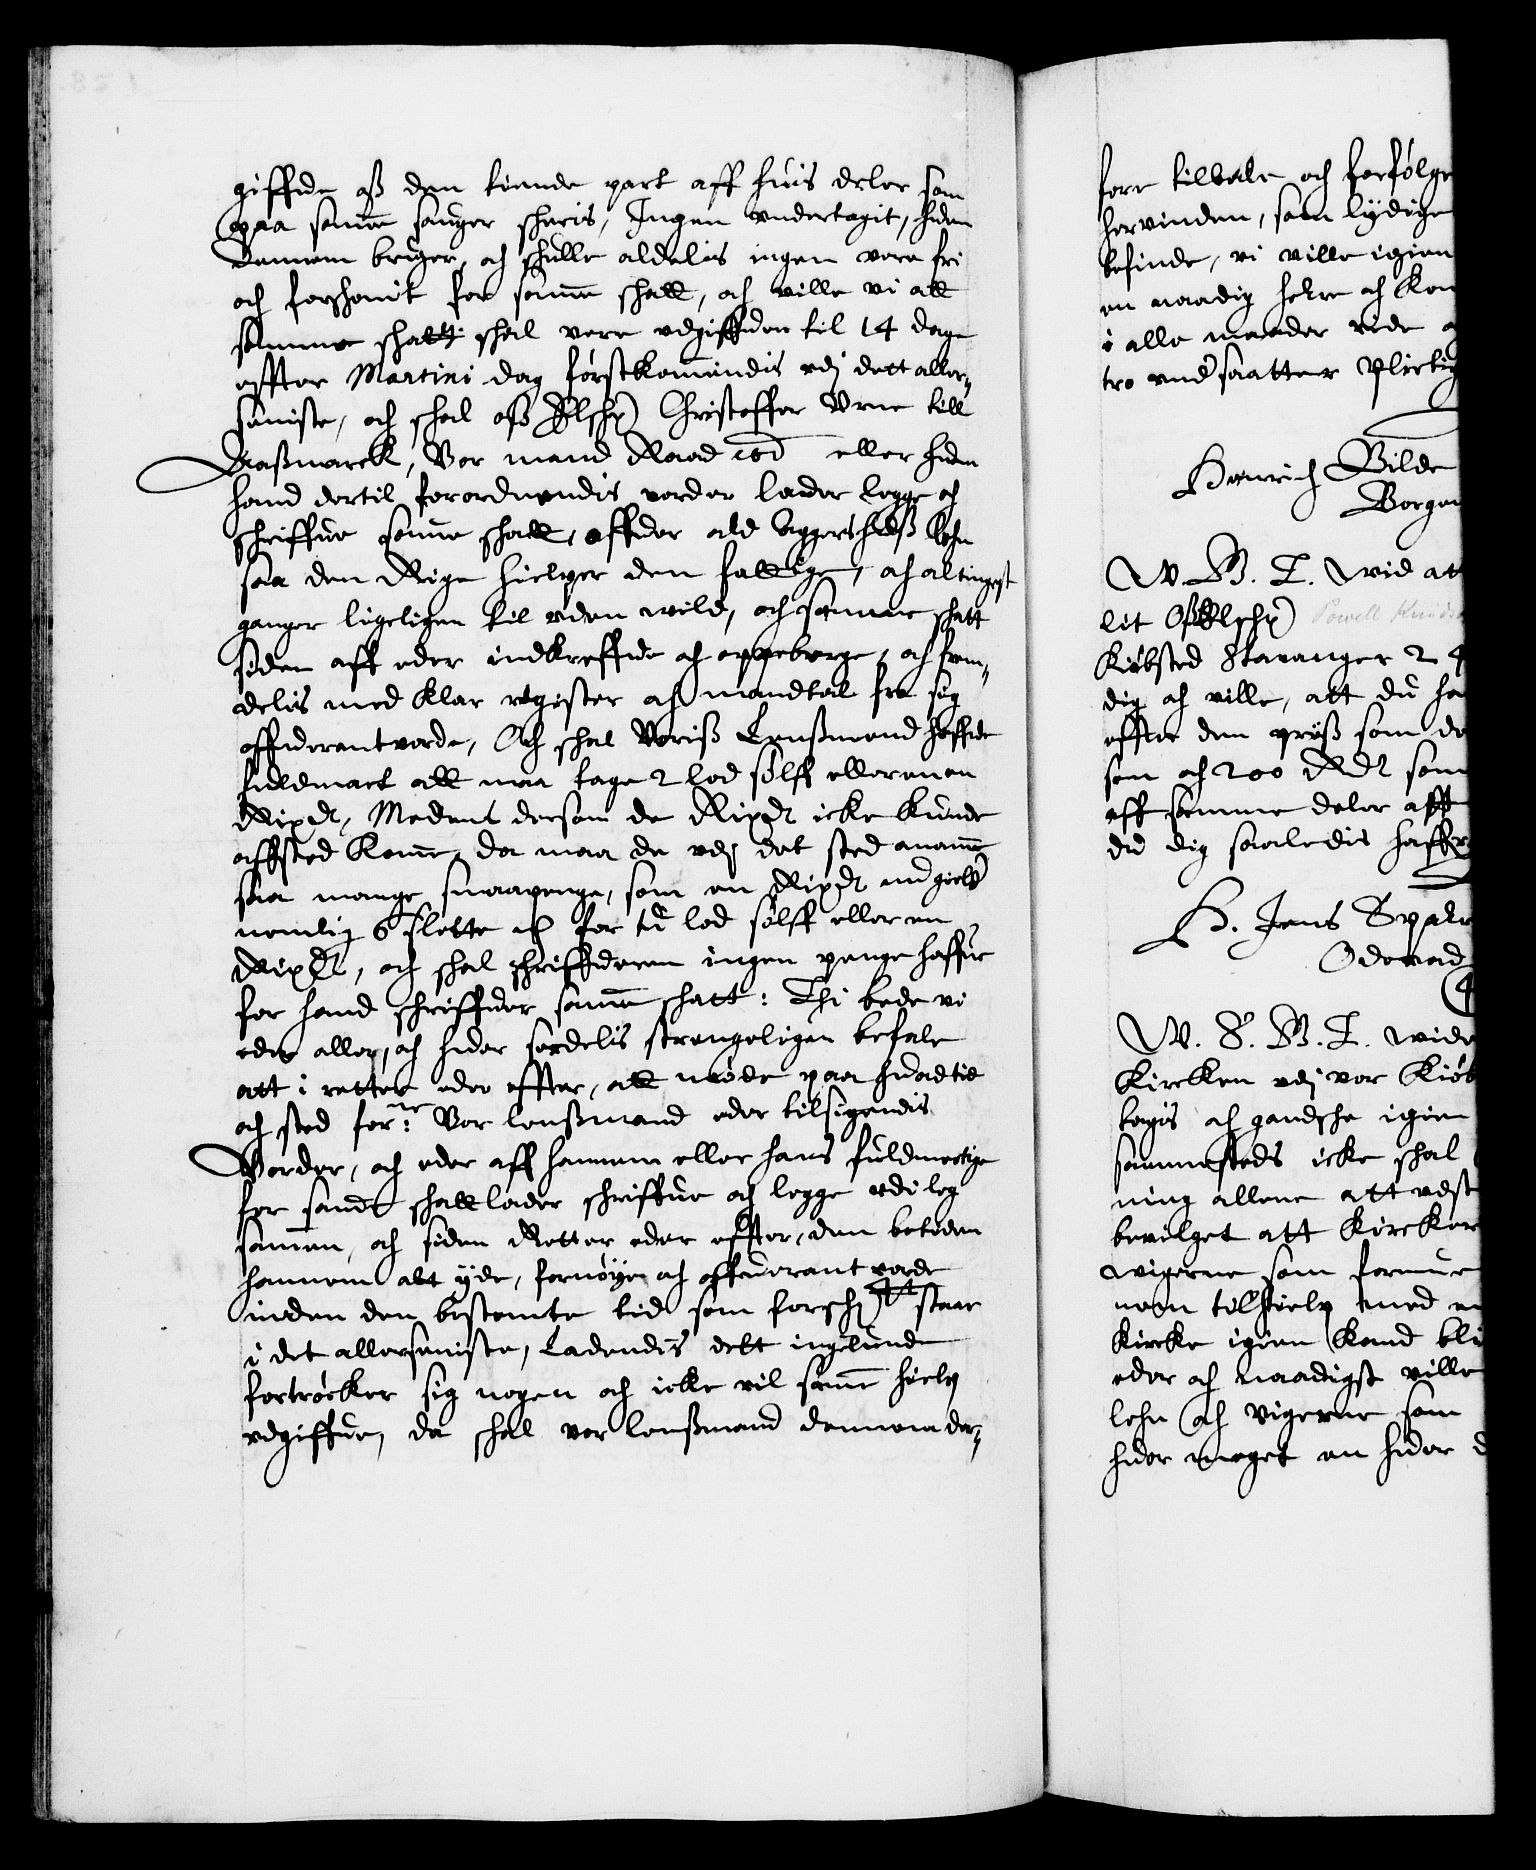 giffue oß den tiende part aff huis deler som
paa samme sauger skeris, Ingen undertagit, huem
dennem bruger, och skulle aldelis ingen vere fri
och forskonit for samme skatt, och ville vi att
samme skatt skal vere udgiffuen til 14 dage
effter Martini dag förstkommendis udj dett aller-
seniste, och skal oß Elskelig Christoffer Urne till
Raaßmarck, Vor mand Raad eller huem
hand dertil forordnendis vorder lader legge och
skriffue samme skatt, offuer ald Aggershuß lehn
saa den Rige hielper den fattige, och altingest
ganger ligeligen til uden wild, och samme skatt
siden aff eder indkreffue och oppeberge, och frem-
delis med klar register och mandtal fra sig
offuerantvorde, Och skal Voriß Lenßmend haffue
fuldmact att maa tage 2 lod sölff eller en
Rixdr, Medens dersom de Rixdr icke kunde
affsted komme, da maa de udj det sted anamme
saa mange smaapenge, som en Rixdr nu gielder
nemlig 6 slette for tu lod sölff eller en
Rixdr, och skal skriffueren ingen penge haffue
for hand skriffuer samme skatt: Thi bede vi
eder alle, och huer serdelis strengeligen befale
att i retter eder effter, att möde paa huad tid
och sted forne: Vor lenßmand eder tilsigendis
Vorder, och eder aff hannem eller hans fuldmectige
for sand skatt lader skriffue och legge udi leg
sammen, och siden Retter eder effter, den betiden
hannem alt yde, fornöye och offuerantvorde
inden den bestemte tid som forskreffuit staar
i det allerseniste, Ladendis dett ingelunde
fortröcker sig nogen och icke vil samme hielp
udgiffue, da skal vor lenßmand dennem der-
fore tiltale och forfölge
hervinden, som lydige
befinde, vi ville igien
en naadig herre och Kon
i alle maader vide
tro undersaatter plictig
Henrich Bilde
Bergen
W. G. T. wid att
lit Oß Elskelig Powell Knuds
Kiöbsted Stavanger 2
dig och ville, att du ha
effter den prijß som de
sen och 200 Rdr som
aff samme deler aff
du dig saaledis haffu
H. Jens Spar
Odensad
W. S. G. T. wide
Kircken udj vor Kiöb
togis och gandske igien
sammesteds icke skal
ning allene att udst
bevilget att Kircker
wigerne som formue
nom tilhielp med
kircke igien kand bli
eder och naadigst ville
lehn och vigerne som
huer meget en huer d